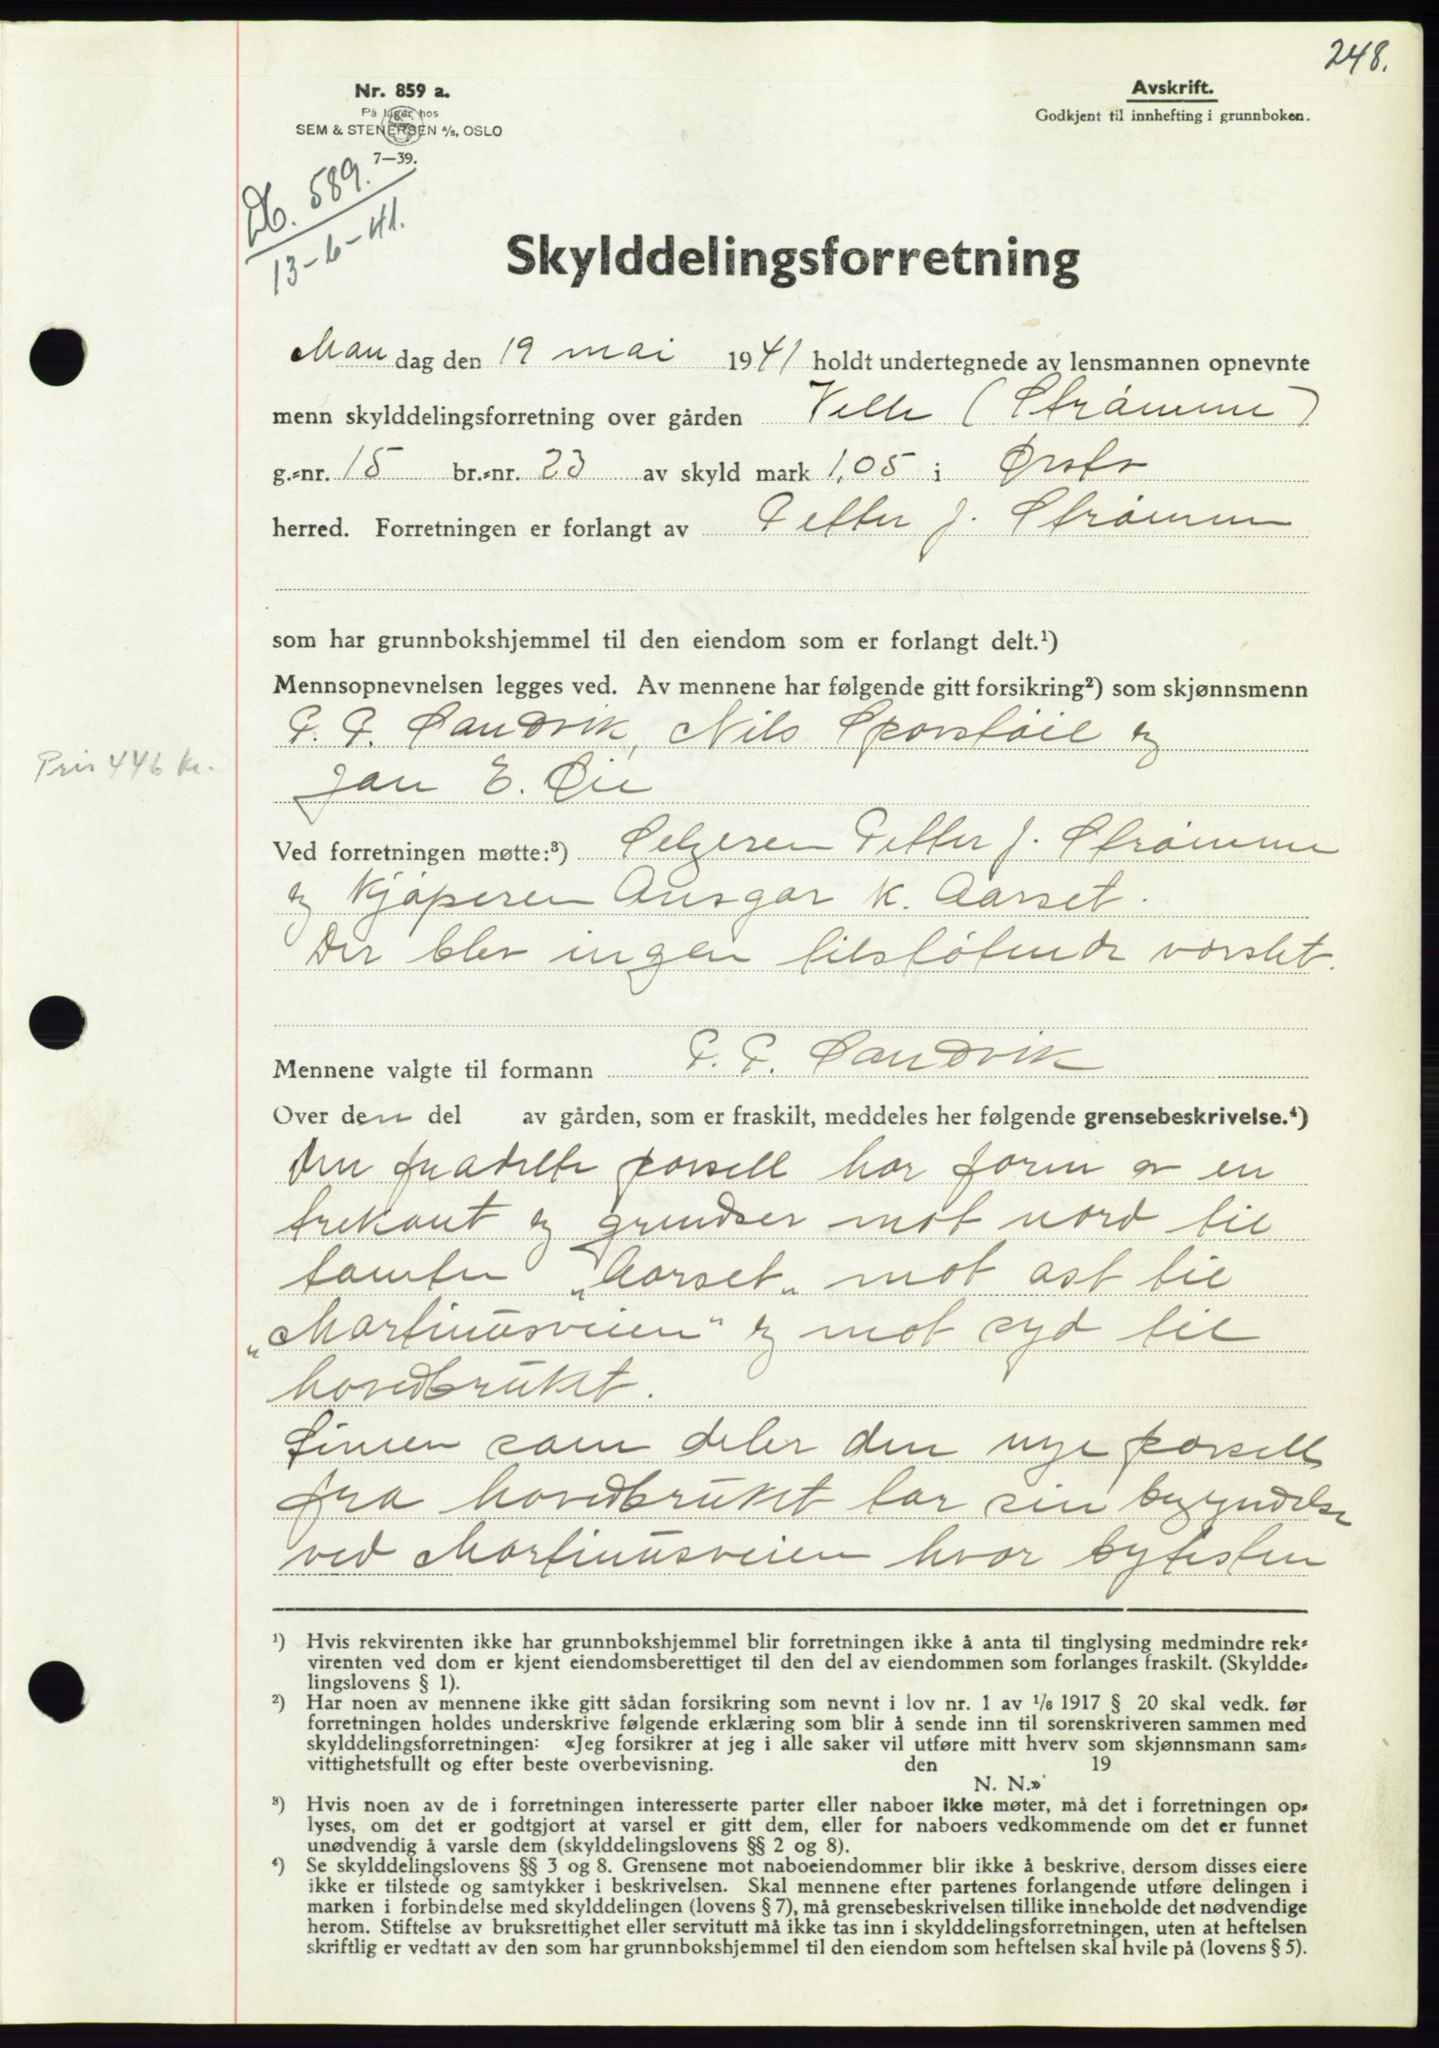 248.
Nr. 859 a.
På lager hos
SEM & STENERSEN A/S, OSLO
7—39.
Avskrift.
Godkjent til innhefting i grunnboken.
Db. 589.
13-6-41.
Skylddelingsforretning
Man dag den 19 mai 1941 holdt undertegnede av lensmannen opnevnte
menn skylddelingsforretning over gården Velle (Strømme)
g.-nr. 15 br.-nr. 23 av skyld mark 1,05 i Ørsta
herred. Forretningen er forlangt av Petter J. Strømme
som har grunnbokshjemmel til den eiendom som er forlangt delt.¹)
Mennsopnevnelsen legges ved. Av mennene har følgende gitt forsikring²) som skjønnsmenn
P. P. Sandvik, Nils Sporstøil og
Pris 446 kr.
Jan E. Øie
Ved forretningen møtte:³) Selgeren Petter J. Strømme
og kjøperen Ansgar K. Aarset.
Der blev ingen tilstøtende varslet.
Mennene valgte til formann P. P. Sandvik
Over den del av gården, som er fraskilt, meddeles her følgende grensebeskrivelse.⁴)
Den fradelte parsell har form av en
trekant og grundser mot nord til
tomten „Aarset„ mot øst til
„Martinusveien" og mot syd til
hovedbruket.
Linien som deler den nye parsell
fra hovedbruket tar sin begyndelse
ved Martinusveien hvor bytesten
¹) Hvis rekvirenten ikke har grunnbokshjemmel blir forretningen ikke å anta til tinglysing medmindre rek-
virenten ved dom er kjent eiendomsberettiget til den del av eiendommen som forlanges fraskilt. (Skyldde-
lingslovens § 1).
²) Har noen av mennene ikke gitt sådan forsikring som nevnt i lov nr. 1 av ¹/₆ 1917 § 20 skal vedk. før
forretningen holdes underskrive følgende erklæring som blir å sende inn til sorenskriveren sammen med
skylddelingsforretningen: «Jeg forsikrer at jeg i alle saker vil utføre mitt hverv som skjønnsmann sam-
vittighetsfullt og efter beste overbevisning. den 19
N. N.»
³) Hvis noen av de i forretningen interesserte parter eller naboer ikke møter, må det i forretningen op-
lyses, om det er godtgjort at varsel er gitt dem, eller for naboers vedkommende om det er funnet
unødvendig å varsle dem (skylddelingslovens §§ 2 og 8).
⁴) Se skylddelingslovens §§ 3 og 8. Grensene mot naboeiendommer blir ikke å beskrive, dersom disses eiere
ikke er tilstede og samtykker i beskrivelsen. Skal mennene efter partenes forlangende utføre delingen i
marken i forbindelse med skylddelingen (lovens § 7), må grensebeskrivelsen tillike inneholde det nødvendige
herom. Stiftelse av bruksrettighet eller servitutt må ikke tas inn i skylddelingsforretningen, uten at heftelsen
skriftlig er vedtatt av den som har grunnbokshjemmel til den eiendom som heftelsen skal hvile på (lovens § 5).